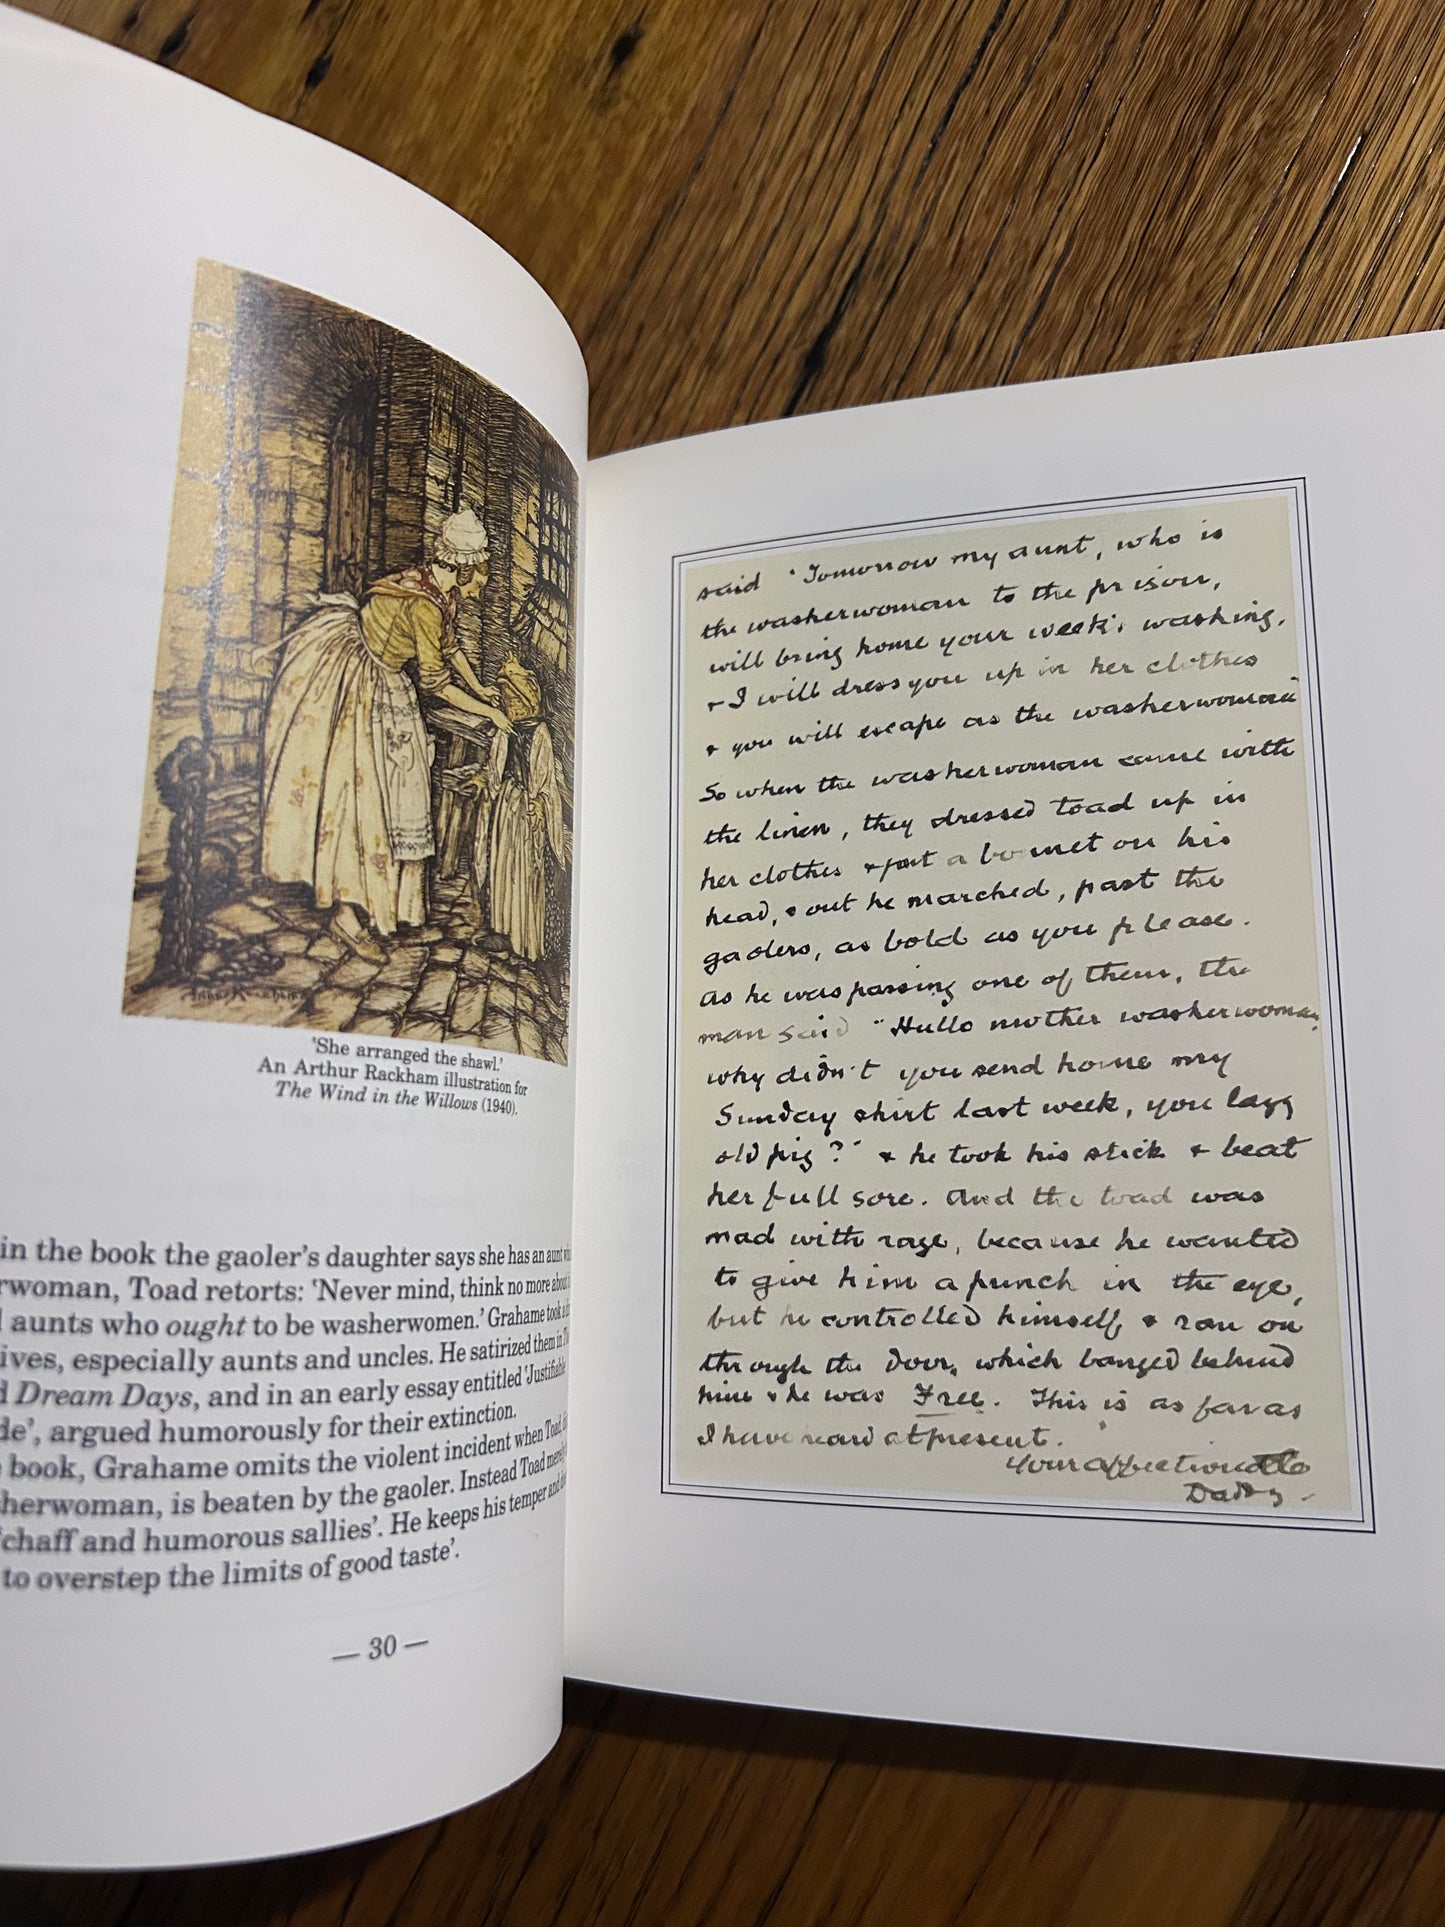 Arthur Rackham
'She arranged the shawl.'
An Arthur Rackham illustration for
The Wind in the Willows (1940).
in the book the gaoler's daughter says she has an aunt
rwoman, Toad retorts: 'Never mind, think no more about
aunts who ought to be washerwomen.' Grahame took a
ives, especially aunts and uncles. He satirized them in
d Dream Days, and in an early essay entitled 'Justifiable
de', argued humorously for their extinction.
book, Grahame omits the violent incident when Toad,
herwoman, is beaten by the gaoler. Instead Toad
'chaff and humorous sallies'. He keeps his temper and
to overstep the limits of good taste'.
— 30 —
said 'Tomorrow my aunt, who is
the washerwoman to the prison,
will bring home your week's washing,
+ I will dress you up in her clothes
+ you will escape as the washerwoman"
So when the washerwoman came with
the linen, they dressed toad up in
her clothes + put a bonnet on his
head, + out he marched, past the
gaolers, as bold as you please.
As he was passing one of them, the
man said "Hullo mother washerwoman,
why didn't you send home my
Sunday shirt last week, you lazy
old pig?" + he took his stick + beat
her full sore. And the toad was
mad with rage, because he wanted
to give him a punch in the eye,
but he controlled himself, + ran on
through the door, which banged behind
him + he was Free. This is as far as
I have read at present.
Your affectionate
Daddy.